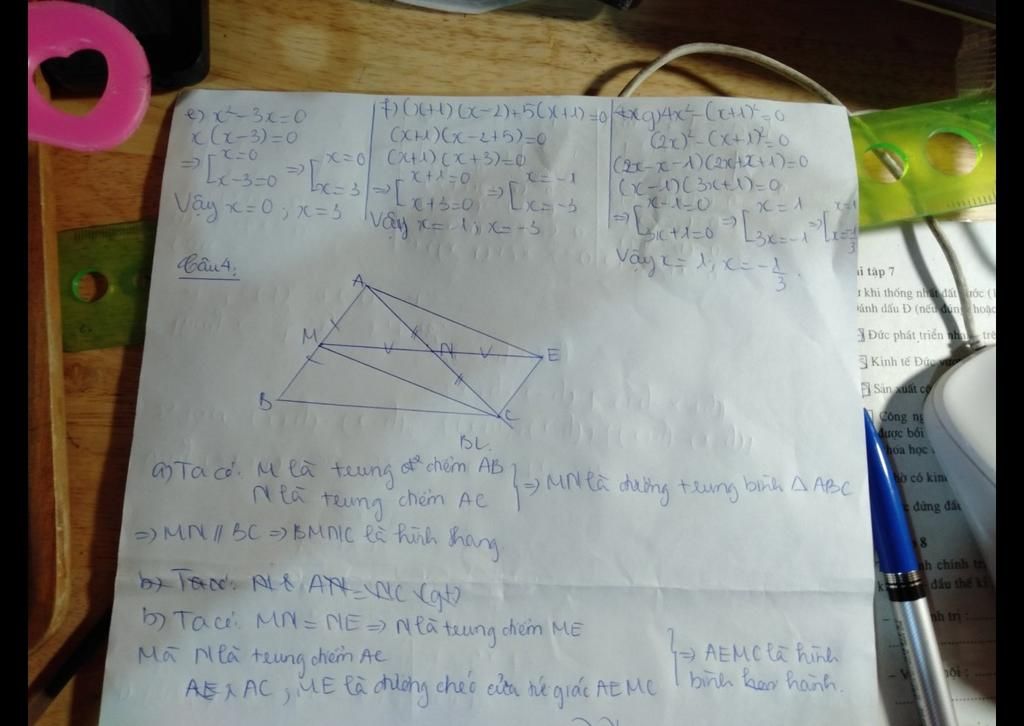 e) x² - 3x = 0
x(x-3) = 0
⇒ [ x = 0
x - 3 = 0 ⇒ [ x = 0
x = 3
Vậy x = 0 ; x = 3
f) (x+1)(x-2)+5(x+1) = 0
(x+1)(x-2+5) = 0
(x+1)(x+3) = 0
⇒ [ x+1 = 0
x+3 = 0 ⇒ [ x = -1
x = -3
Vậy x = -1 ; x = -3
g) 4x² - (x+1)² = 0
(2x)² - (x+1)² = 0
(2x-x-1)(2x+x+1) = 0
(x-1)(3x+1) = 0
⇒ [ x-1 = 0
3x+1 = 0 ⇒ [ x = 1
3x = -1 ⇒ [ x = 1
x = -1/3
Vậy x = 1 ; x = -1/3.
Câu 4:
A
M
N
E
B
C
BL
a) Ta có: M là trung điểm AB
N là trung điểm AC } ⇒ MN là đường trung bình Δ ABC
⇒ MN // BC ⇒ BMNC là hình thang
b) Ta có: AN = NC (gt)
b) Ta có: MN = NE ⇒ N là trung điểm ME
Mà N là trung điểm AC
AC, ME là đường chéo của tứ giác AEMC } ⇒ AEMC là hình
bình hành.
ài tập 7
khi thống nhất đất nước (1
đánh dấu Đ (nếu đúng) hoặc
Đức phát triển
Kinh tế Đức
Sản xuất
Công
được bồi
hóa học
có kin
đứng đầu
8
chính trị
đầu thế kỉ
trị :